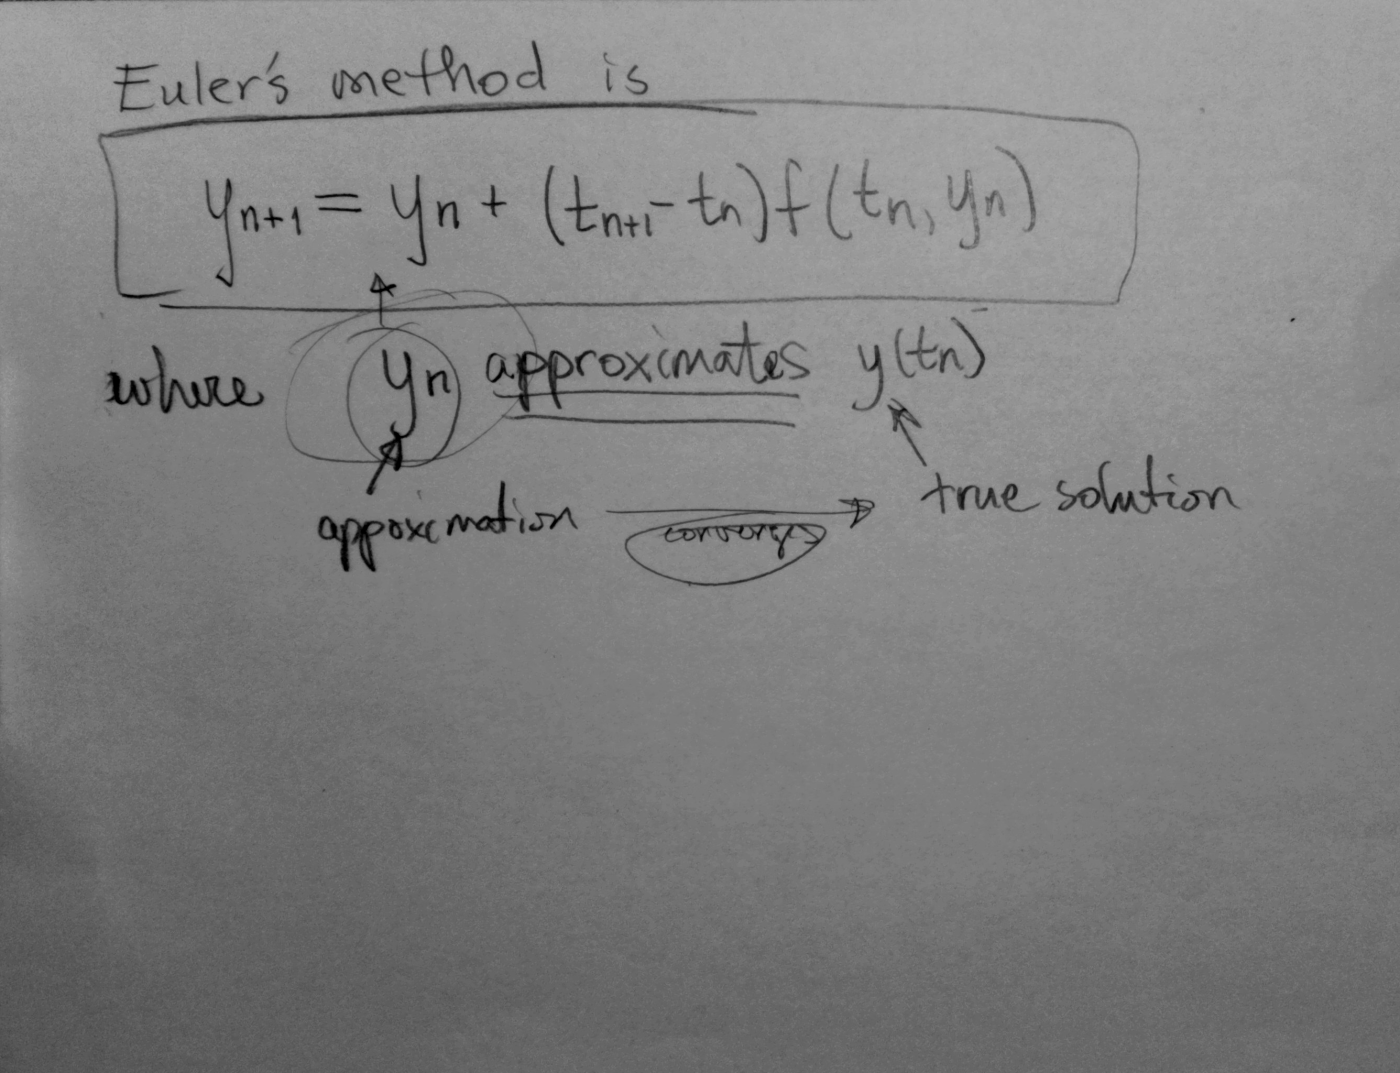 Euler's method is
yn+1 = yn + (tn+1 - tn) f(tn, yn)
where yn approximates y(tn)
appoximation converges true solution